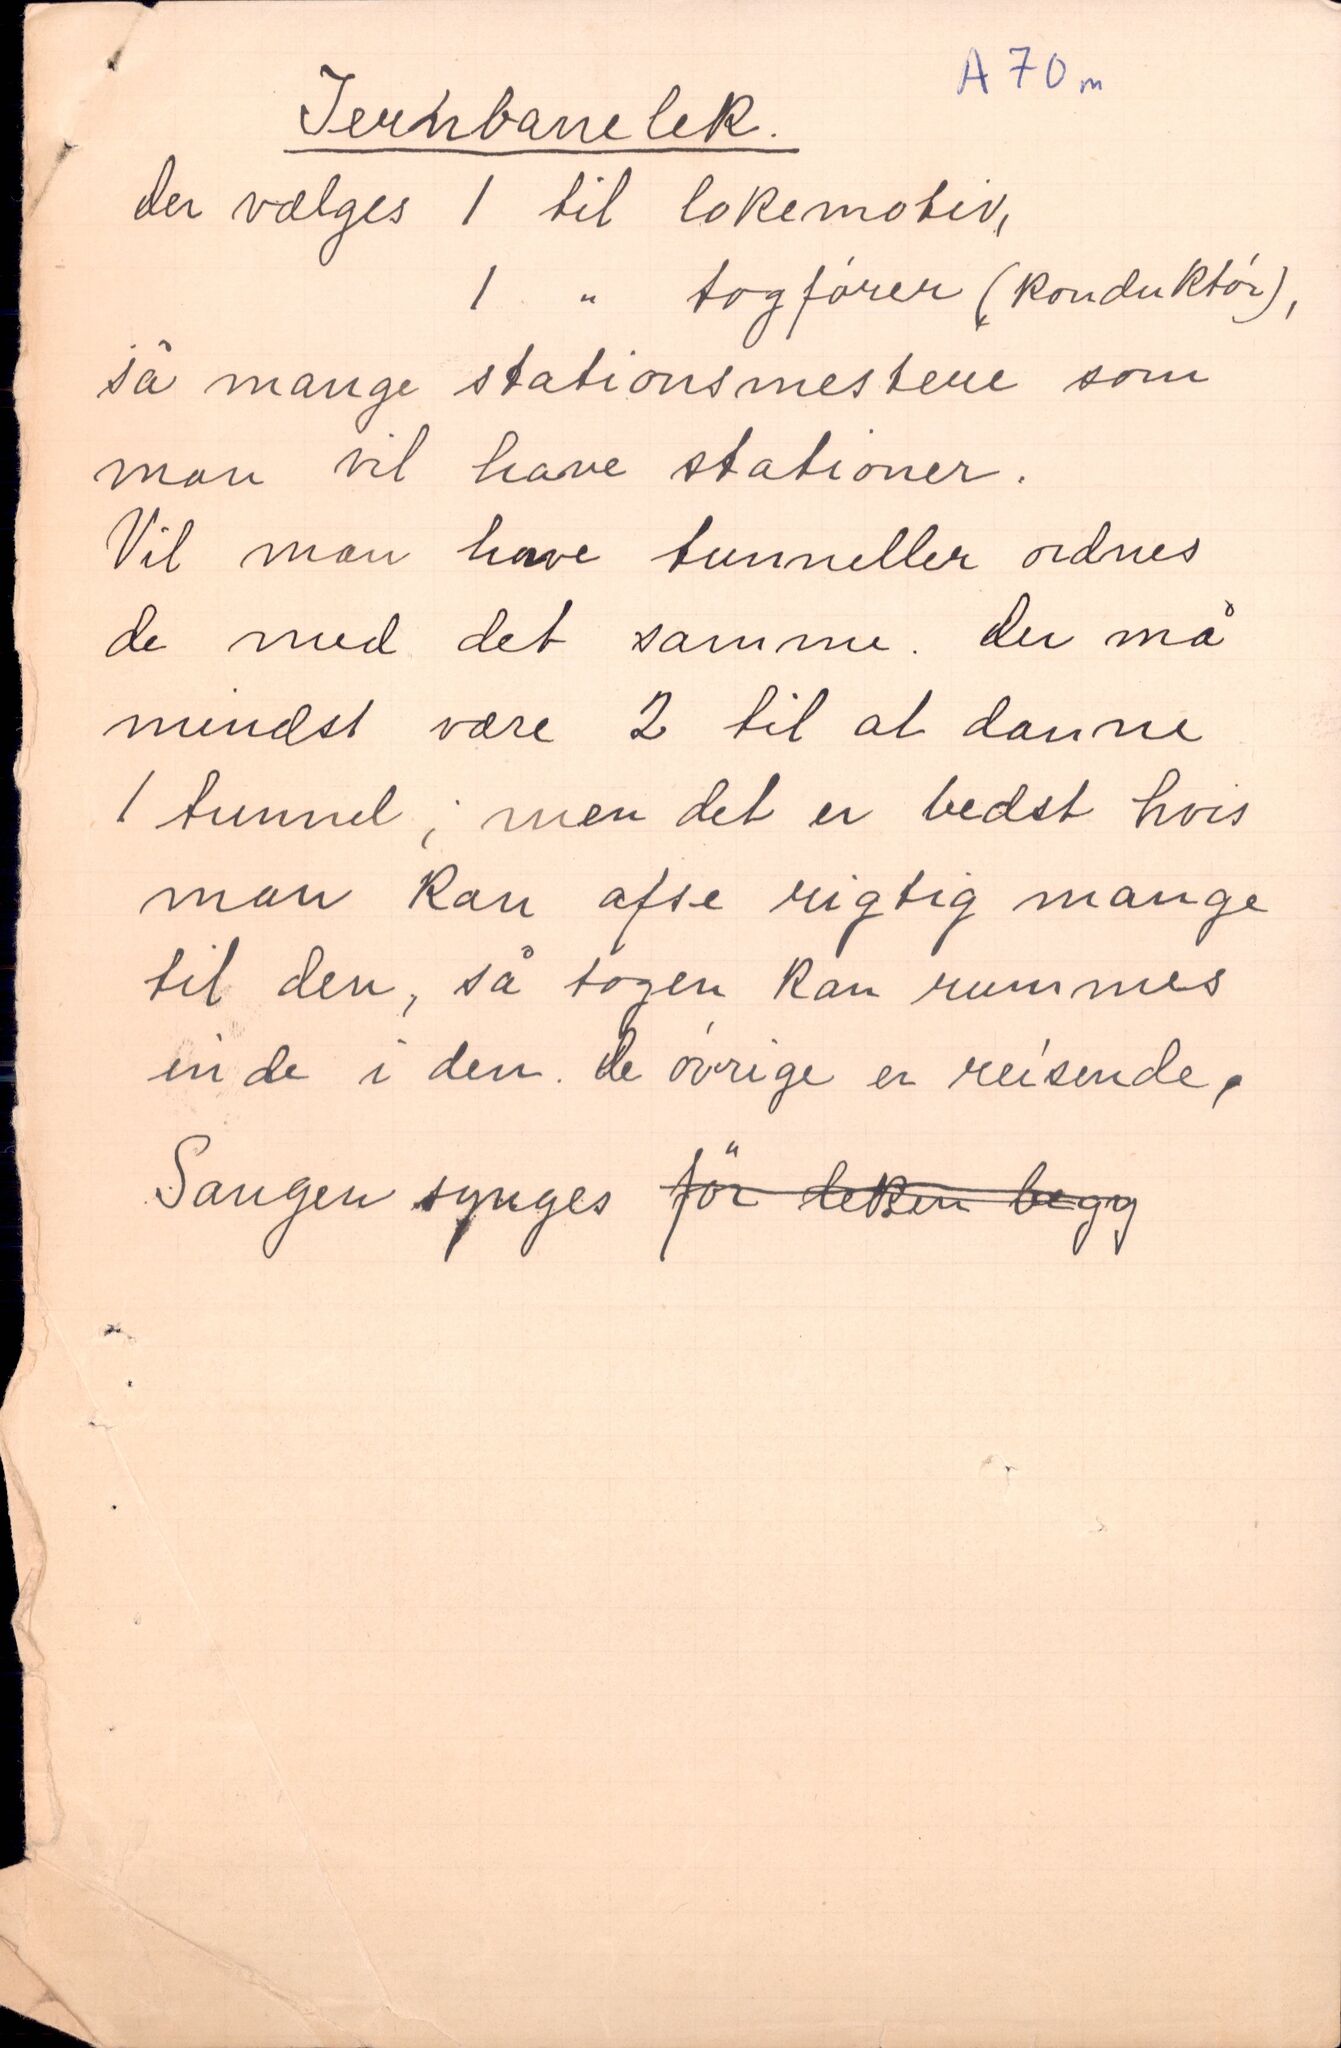 A 70m
Jernbanelek.
der vælges 1 til lokemotiv,
1 " togfórer (konduktór),
så mange stationsmestere som
man vil have stationer.
Vil man have tunneller ordnes
de med det samme. der må
mindst være 2 til at danne
1 tunnel; men det er bedst hvis
man kan afse rigtig mange
til den, så togen kan rummes
inde i den. de óvrige er reisende.
Sangen synges för leken begy